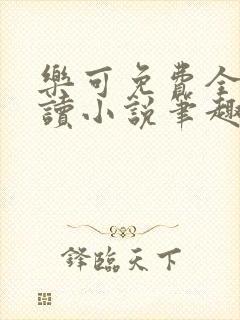 樂可免費全
讀小說筆趣
鋒臨天下